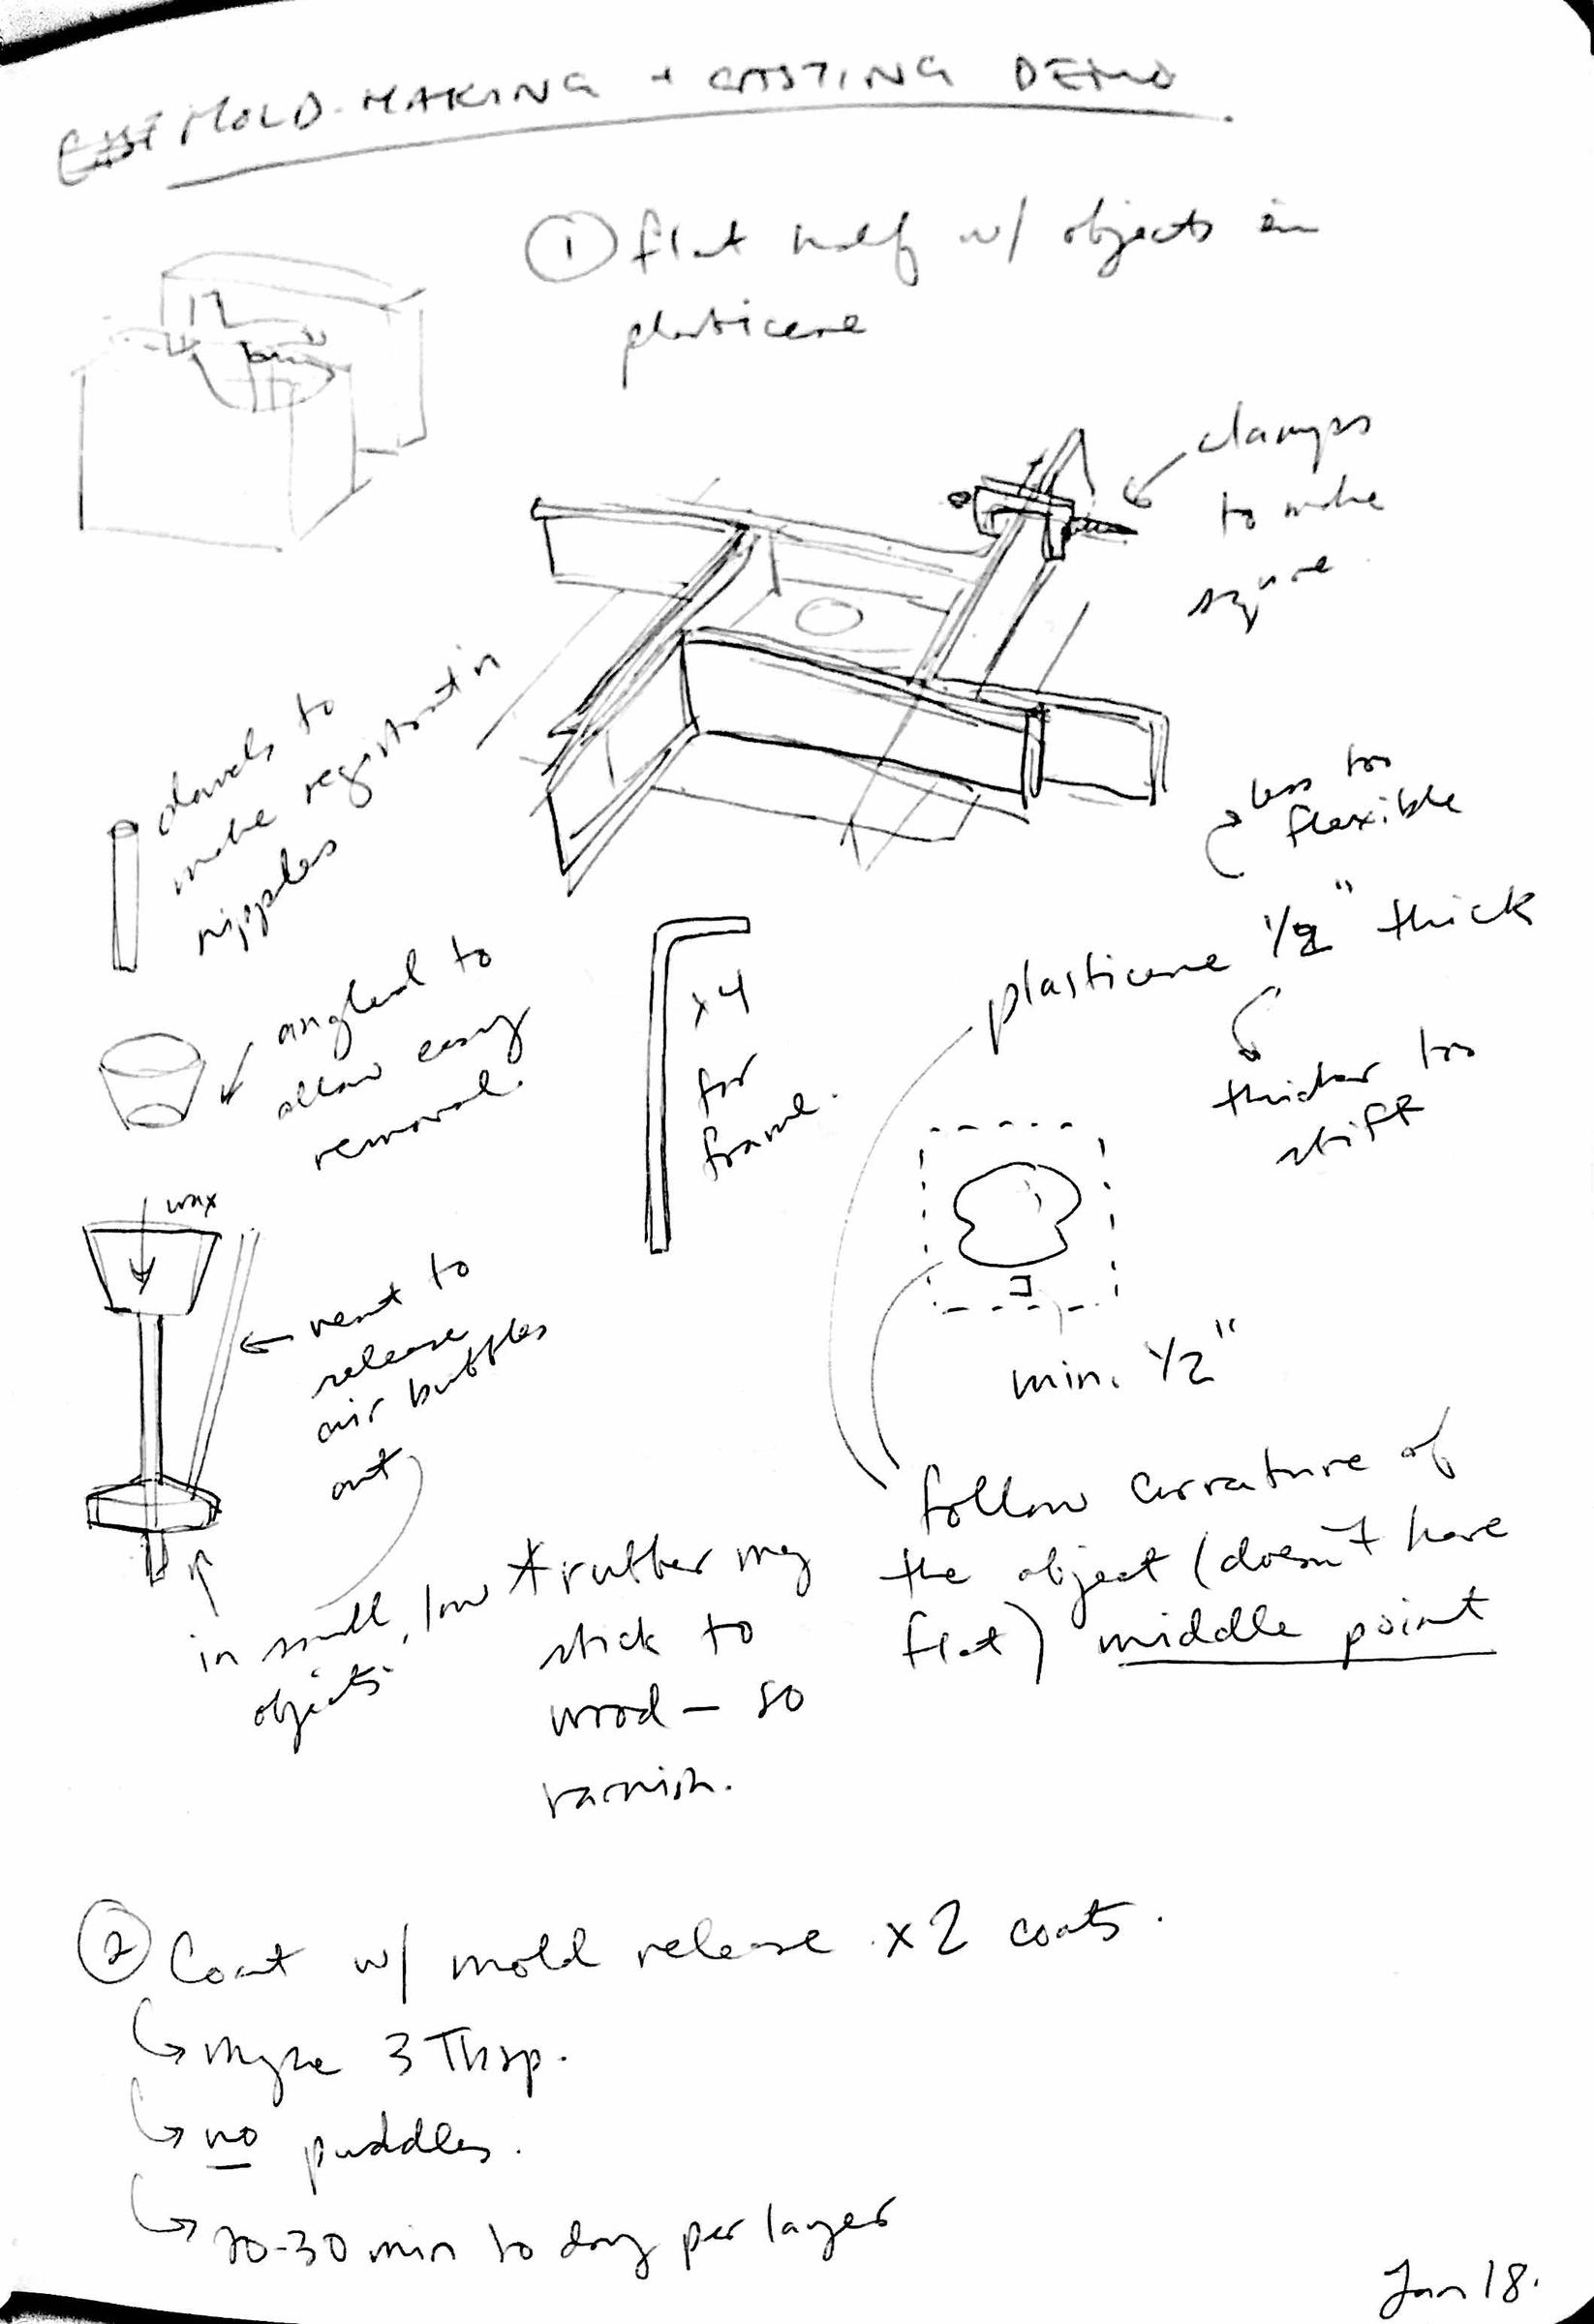 MOLD-MAKING + CASTING DEMO
① flat half w/ objects in
plasticene
clamps
to make
square.
dowels to
make registration
nipples
less too
flexible
plasticene 1/2" thick
thicker too
stiff
angled to
allow easy
removal.
x4
for
frame.
wax
vent to
release
air bubbles
out
in small, low
objects.
min. 1/2"
follow curvature of
the object (doesn't have
flat) middle point
* rubber may
stick to
wood - so
varnish.
② Coat w/ mold release x2 coats.
maybe 3 Tbsp.
no puddles.
20-30 min to dry per layer
Jan 18.